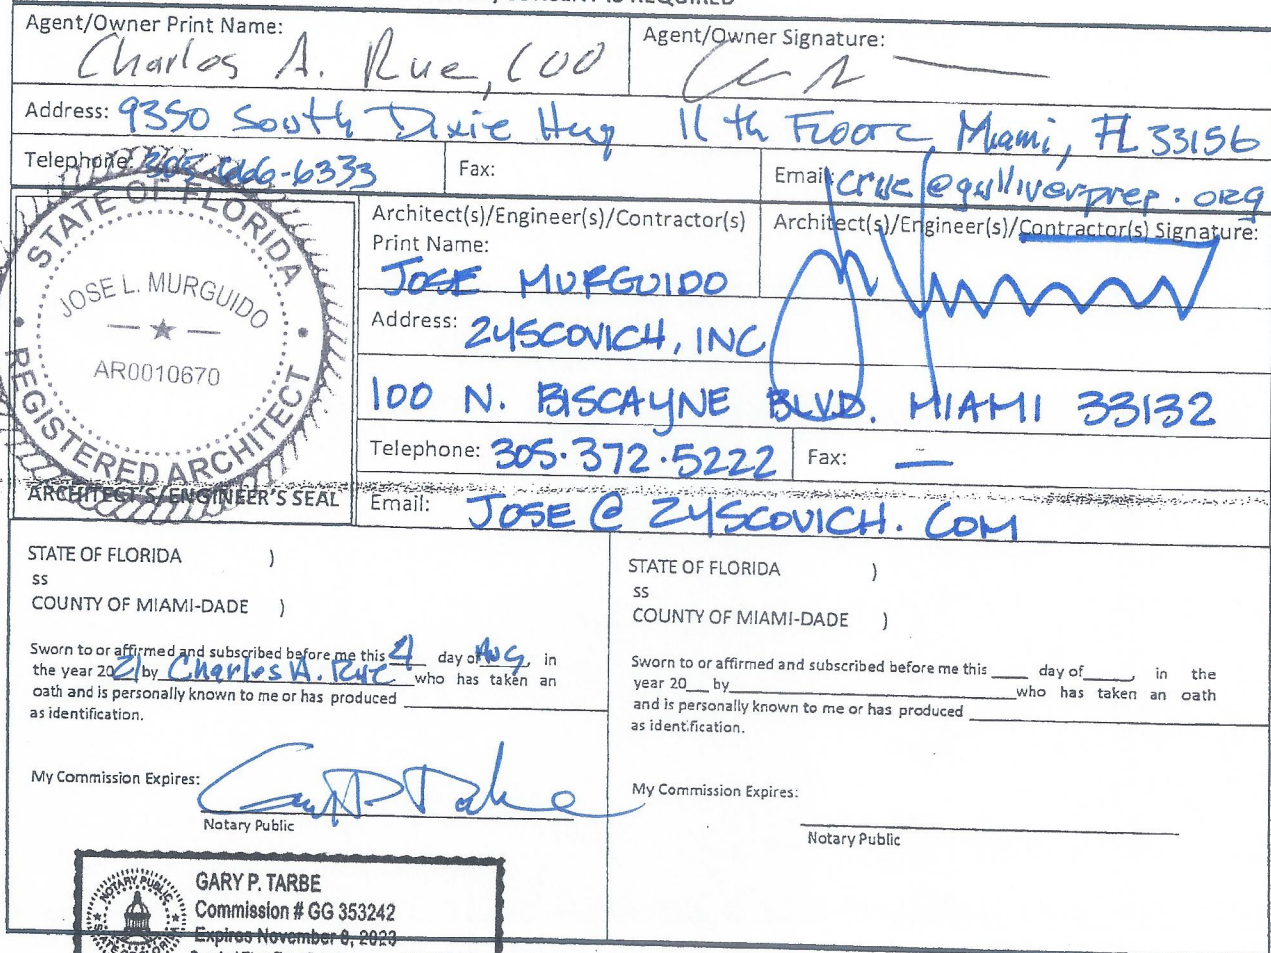 CONSENT IS REQUIRED
Agent/Owner Print Name:
Charles A. Rue, COO
Agent/Owner Signature:
Address: 9350 South Dixie Hwy 11th Floor, Miami, FL 33156
Telephone: 305-666-6333
Fax:
Email: crue@gulliverprep.org
STATE OF FLORIDA
JOSE L. MURGUIDO
AR0010670
REGISTERED ARCHITECT
ARCHITECT'S/ENGINEER'S SEAL
Architect(s)/Engineer(s)/Contractor(s)
Print Name:
JOSE MURGUIDO
Architect(s)/Engineer(s)/Contractor(s) Signature:
Address: ZYSCOVICH, INC
100 N. BISCAYNE BLVD. MIAMI 33132
Telephone: 305.372.5222
Fax: —
Email: JOSE@ZYSCOVICH.COM
STATE OF FLORIDA )
ss
COUNTY OF MIAMI-DADE )
Sworn to or affirmed and subscribed before me this 4 day of Aug, in
the year 2021 by Charles A. Rue who has taken an
oath and is personally known to me or has produced
as identification.
My Commission Expires:
Notary Public
NOTARY PUBLIC
GARY P. TARBE
Commission # GG 353242
Expires November 8, 2023
STATE OF FLORIDA )
ss
COUNTY OF MIAMI-DADE )
Sworn to or affirmed and subscribed before me this ____ day of _____, in the
year 20__ by ____ who has taken an oath
and is personally known to me or has produced
as identification.
My Commission Expires:
Notary Public